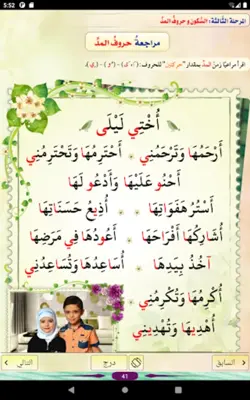 5:52
المرحلة الثالثة: السكون وحروف المد
مراجعة حروف المد
اقرأ مراعيا زمن المد بمقدار "حركتين" للحروف:
أُخْتِي لَيْلَى
أَرْحَمُهَا وَتَرْحَمُنِي أَحْتَرِمُهَا وَتَحْتَرِمُنِي
أَحْنُو عَلَيْهَا وَأَدْعُو لَهَا
أَسْتُرُ هَفَوَاتِهَا أُذِيعُ حَسَنَاتِهَا
أُشَارِكُهَا أَفْرَاحَهَا أَعُودُهَا فِي مَرَضِهَا
آخُذُ بِيَدِهَا أُسَاعِدُهَا وَتُسَاعِدُنِي
أُكْرِمُهَا وَتُكْرِمُنِي
أُهْدِيهَا وَتُهْدِينِي
السابق
درج
التالي
41